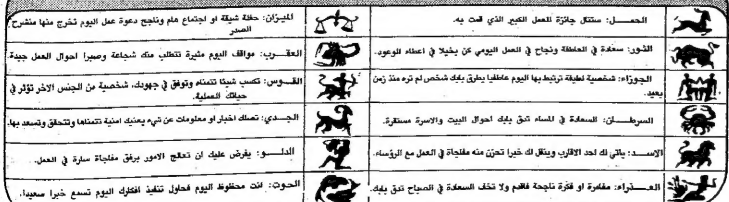 الحمـــل: ستنال جائزة للعمل الكبير الذي قمت به.
الثـور: سعادة في العاطفة ونجاح في العمل اليومي كن بخيلا في اعطاء الوعود.
الجوزاء: شخصية لطيفة ترتبط بها اليوم عاطفيا يطرق بابك شخص لم تره منذ زمن
بعيد.
السرطــان: السعادة في المساء تدق بابك احوال البيت والاسرة مستقرة.
الاســد: ياتي لك احد الاقارب وينقل لك خبرا تحزن منه مفاجأة في العمل مع الرؤساء.
العـــذراء: مغامرة او فكرة ناجحة فاقدم ولا تخف السعادة في الصباح تدق بابك.
الميـزان: حفلة شيقة او اجتماع هام وناجح دعوة عمل اليوم تخرج منها منشرح
الصدر
العقـــرب: مواقف اليوم مثيرة تتطلب منك شجاعة وصبرا احوال العمل جيدة.
القـــوس: تكسب شيئا تتمناه وتوفق في جهودك، شخصية من الجنس الاخر تؤثر في
حياتك العملية.
الجـــدي: تصلك اخبار او معلومات عن شيء يعنيك امنية تتمناها وتتحقق وتسعد بها.
الدلـــو: يفرض عليك ان تعالج الامور برفق مفاجأة سارة في العمل.
الحوت: انت محظوظ اليوم فحاول تنفيذ افكارك اليوم تسمع خبرا سعيدا.